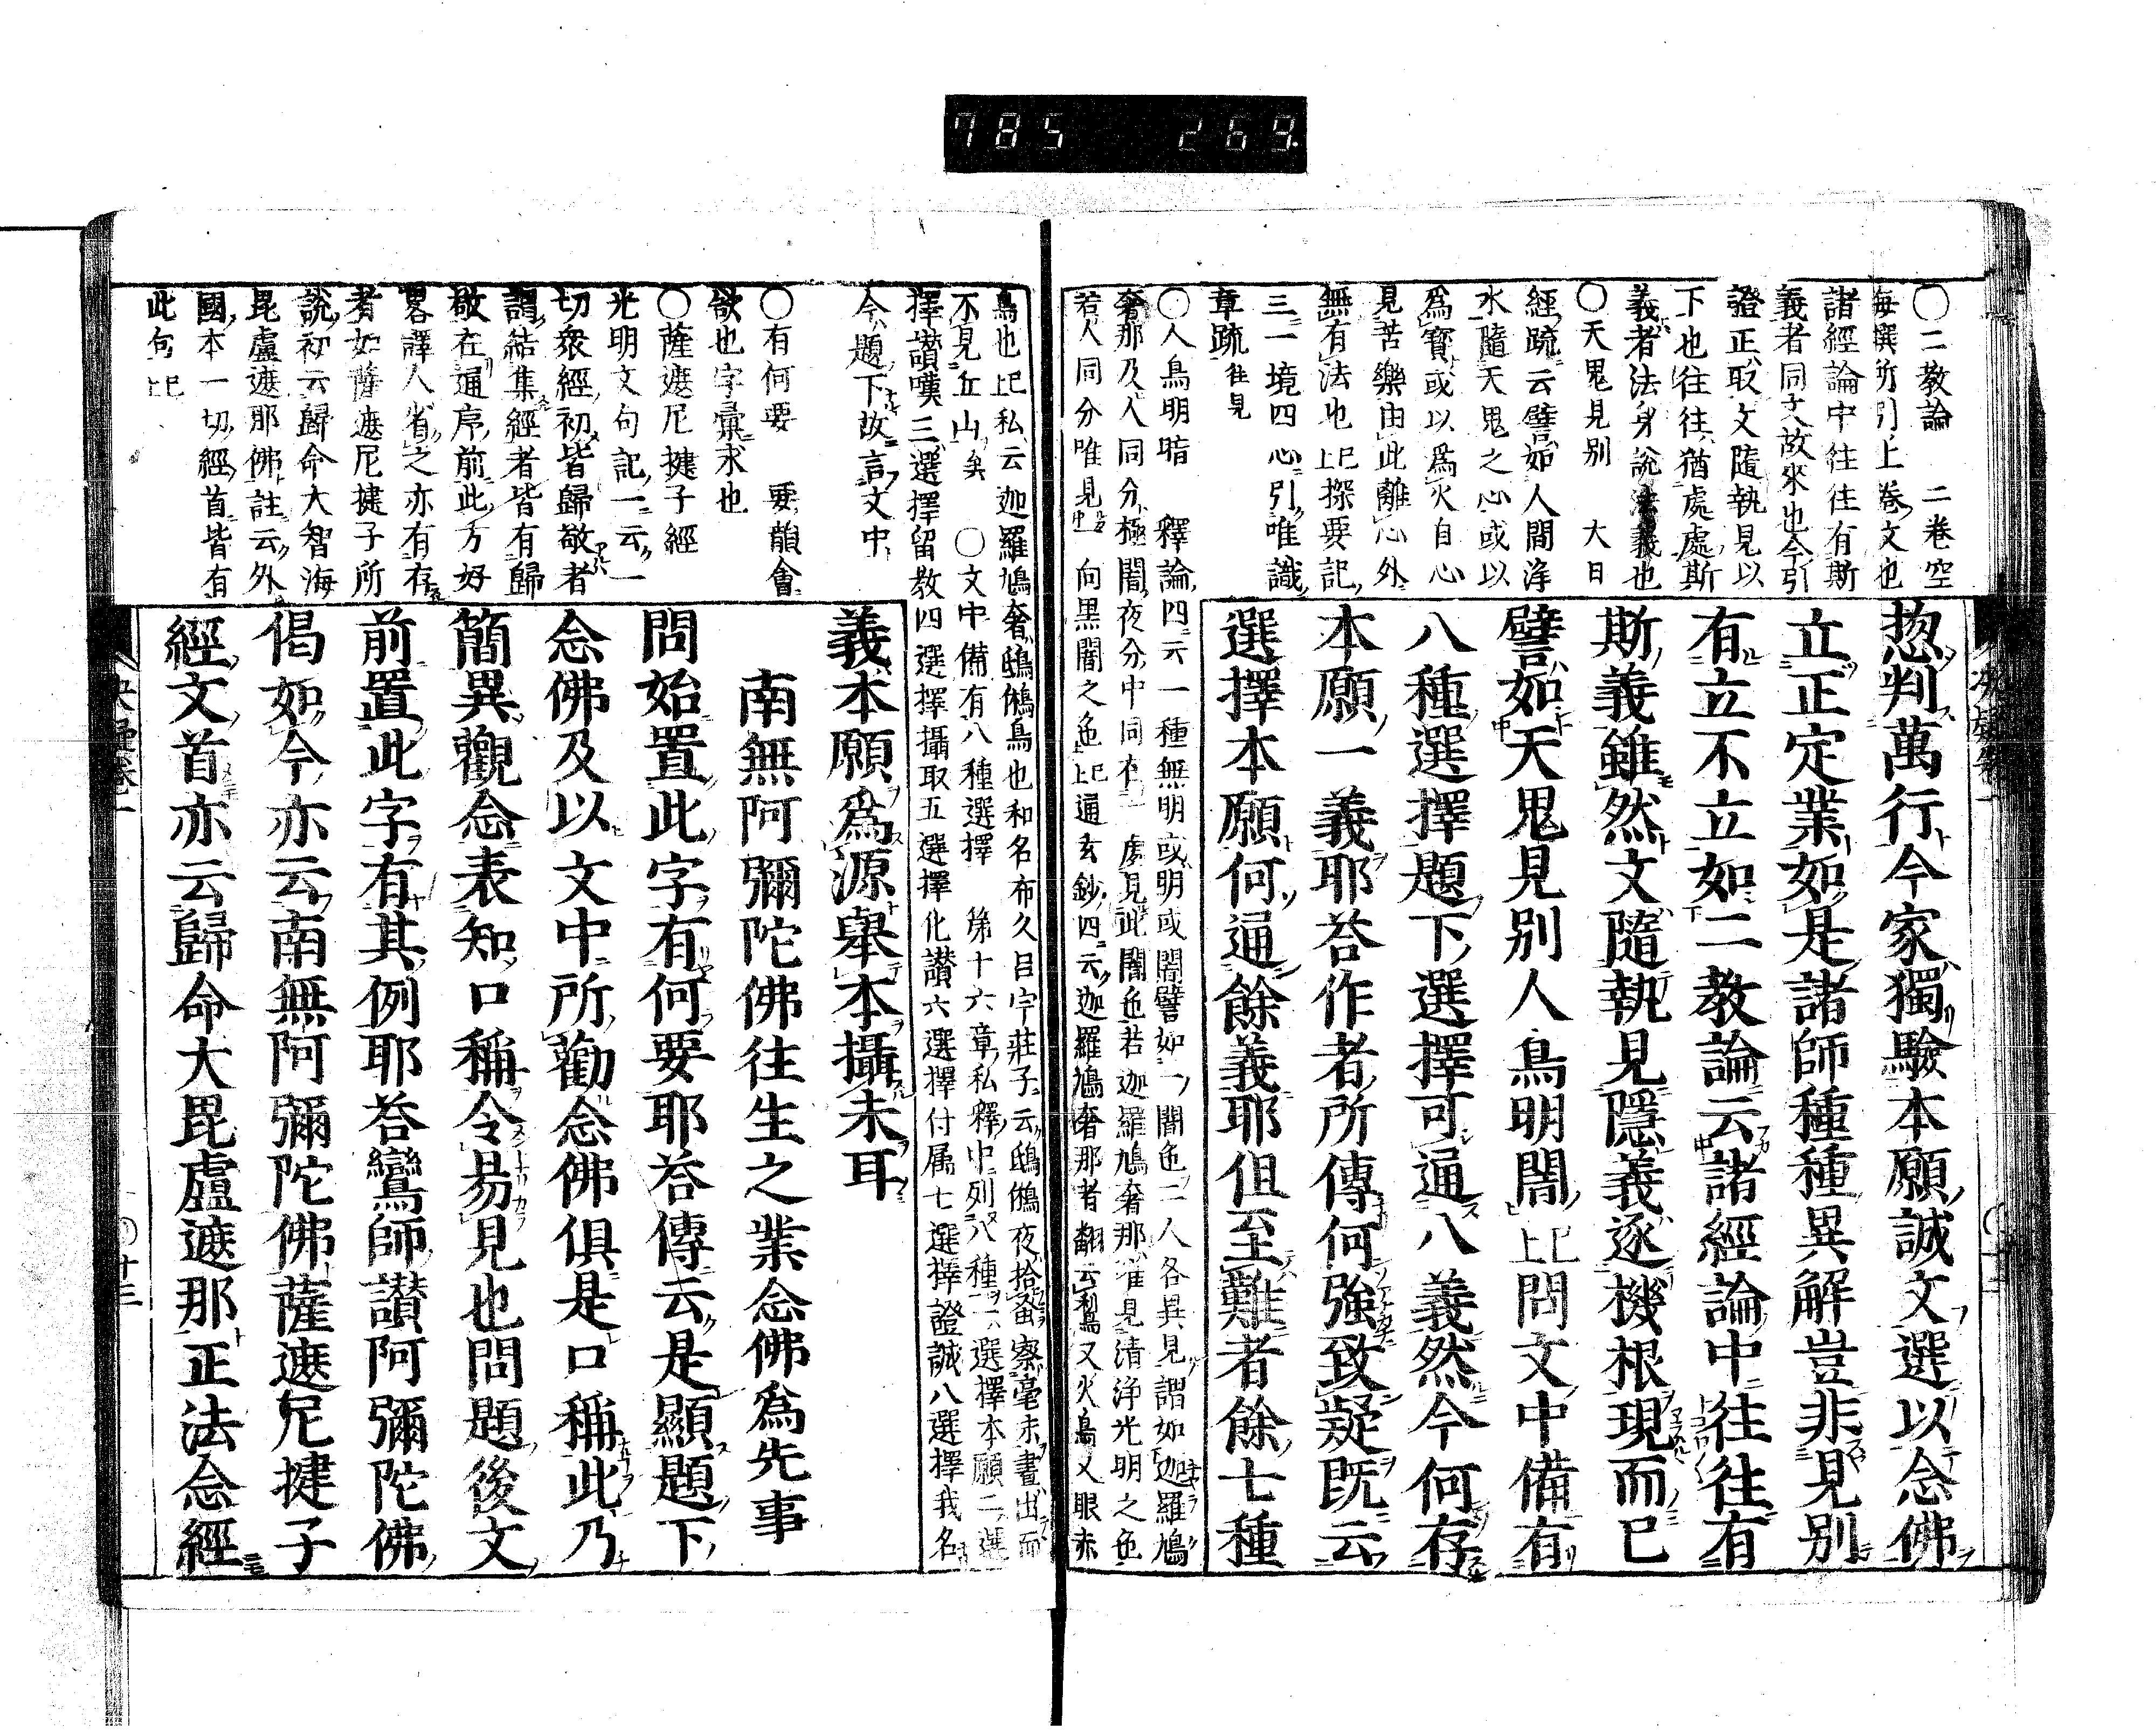 785 269
〇二教論 二卷空
海撰所引上卷文也
諸經論中往往有斯
義者同文故來也今引
證正取文隨執見以
下也往往猶處處斯
義者法身說法義也
〇天鬼見別 大日
經疏云譬如人間淨
水隨天鬼之心或以
爲寶或以爲火自心
見苦樂由此離心外
無有法也已上探要記
三一境四心引唯識
章疏往見
〇人鳥明暗 釋論四云一種無明或明或闇譬如一闇色二人各異見謂如迦羅鳩
奢那及人同分極闇夜分中同在一處見此闇色若迦羅鳩奢那唯見清淨光明之色
若人同分唯見一向黑闇之色已上通玄鈔四云迦羅鳩奢那者翻云利鳥又火鳥又眼赤
惣判萬行今家獨驗本願誠文選以念佛
立正定業如是諸師種種異解豈非見別
有立不立如二教論云諸經論中往往有
斯義雖然文隨執見隱義逐機根現而已
譬如天鬼見別人鳥明闇已上問文中備有
八種選擇題下選擇可通八義然今何存
本願一義耶荅作者所傳何強致疑既云
選擇本願何通餘義耶但至難者餘七種
鳥也已上私云迦羅鳩奢鴟鵂鳥也和名布久呂宇莊子云鴟鵂夜拾蚤察毫末晝出而
不見丘山矣 〇文中備有八種選擇 第十六章私釋中列八種一選擇本願二選
擇讚嘆三選擇留教四選擇攝取五選擇化讚六選擇付属七選擇證誠八選擇我名
今題下故言文中
〇有何要 要韻會
欲也字彙求也
〇薩遮尼揵子經
光明文句記一云一
切衆經初皆歸敬者
謂結集經者皆有歸
敬在通序前此方好
畧譯人省之亦有存
者如薩遮尼揵子所
說初云歸命大智海
毘盧遮那佛註云外
國本一切經首皆有
此句已上
義本願爲源舉本攝末耳
南無阿彌陀佛往生之業念佛爲先事
問始置此字有何要耶荅傳云是顯題下
念佛及以文中所勸念佛俱是口稱此乃
簡異觀念表知口稱令易見也問題後文
前置此字有其例耶荅鸞師讃阿彌陀佛
偈如今亦云南無阿彌陀佛薩遮尼揵子
經文首亦云歸命大毘盧遮那正法念經